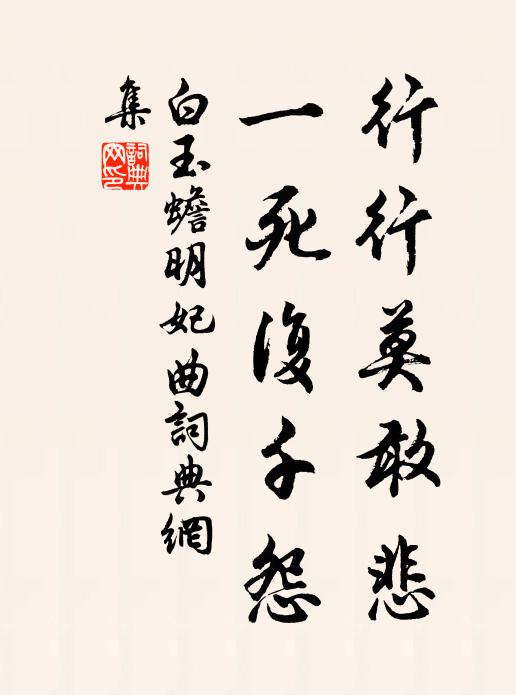 行行莫敢悲
一死復千怨
白玉蟾明妃曲詞典網
集
詞典網印